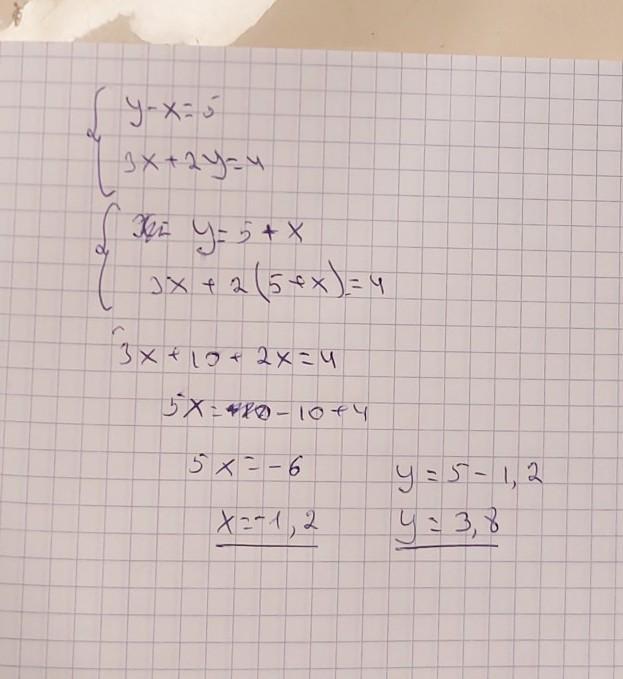 y-x=5
3x+2y=4
y=5+x
3x+2(5+x)=4
3x+10+2x=4
5x=-10+4
5x=-6
y=5-1,2
x=-1,2
y=3,8